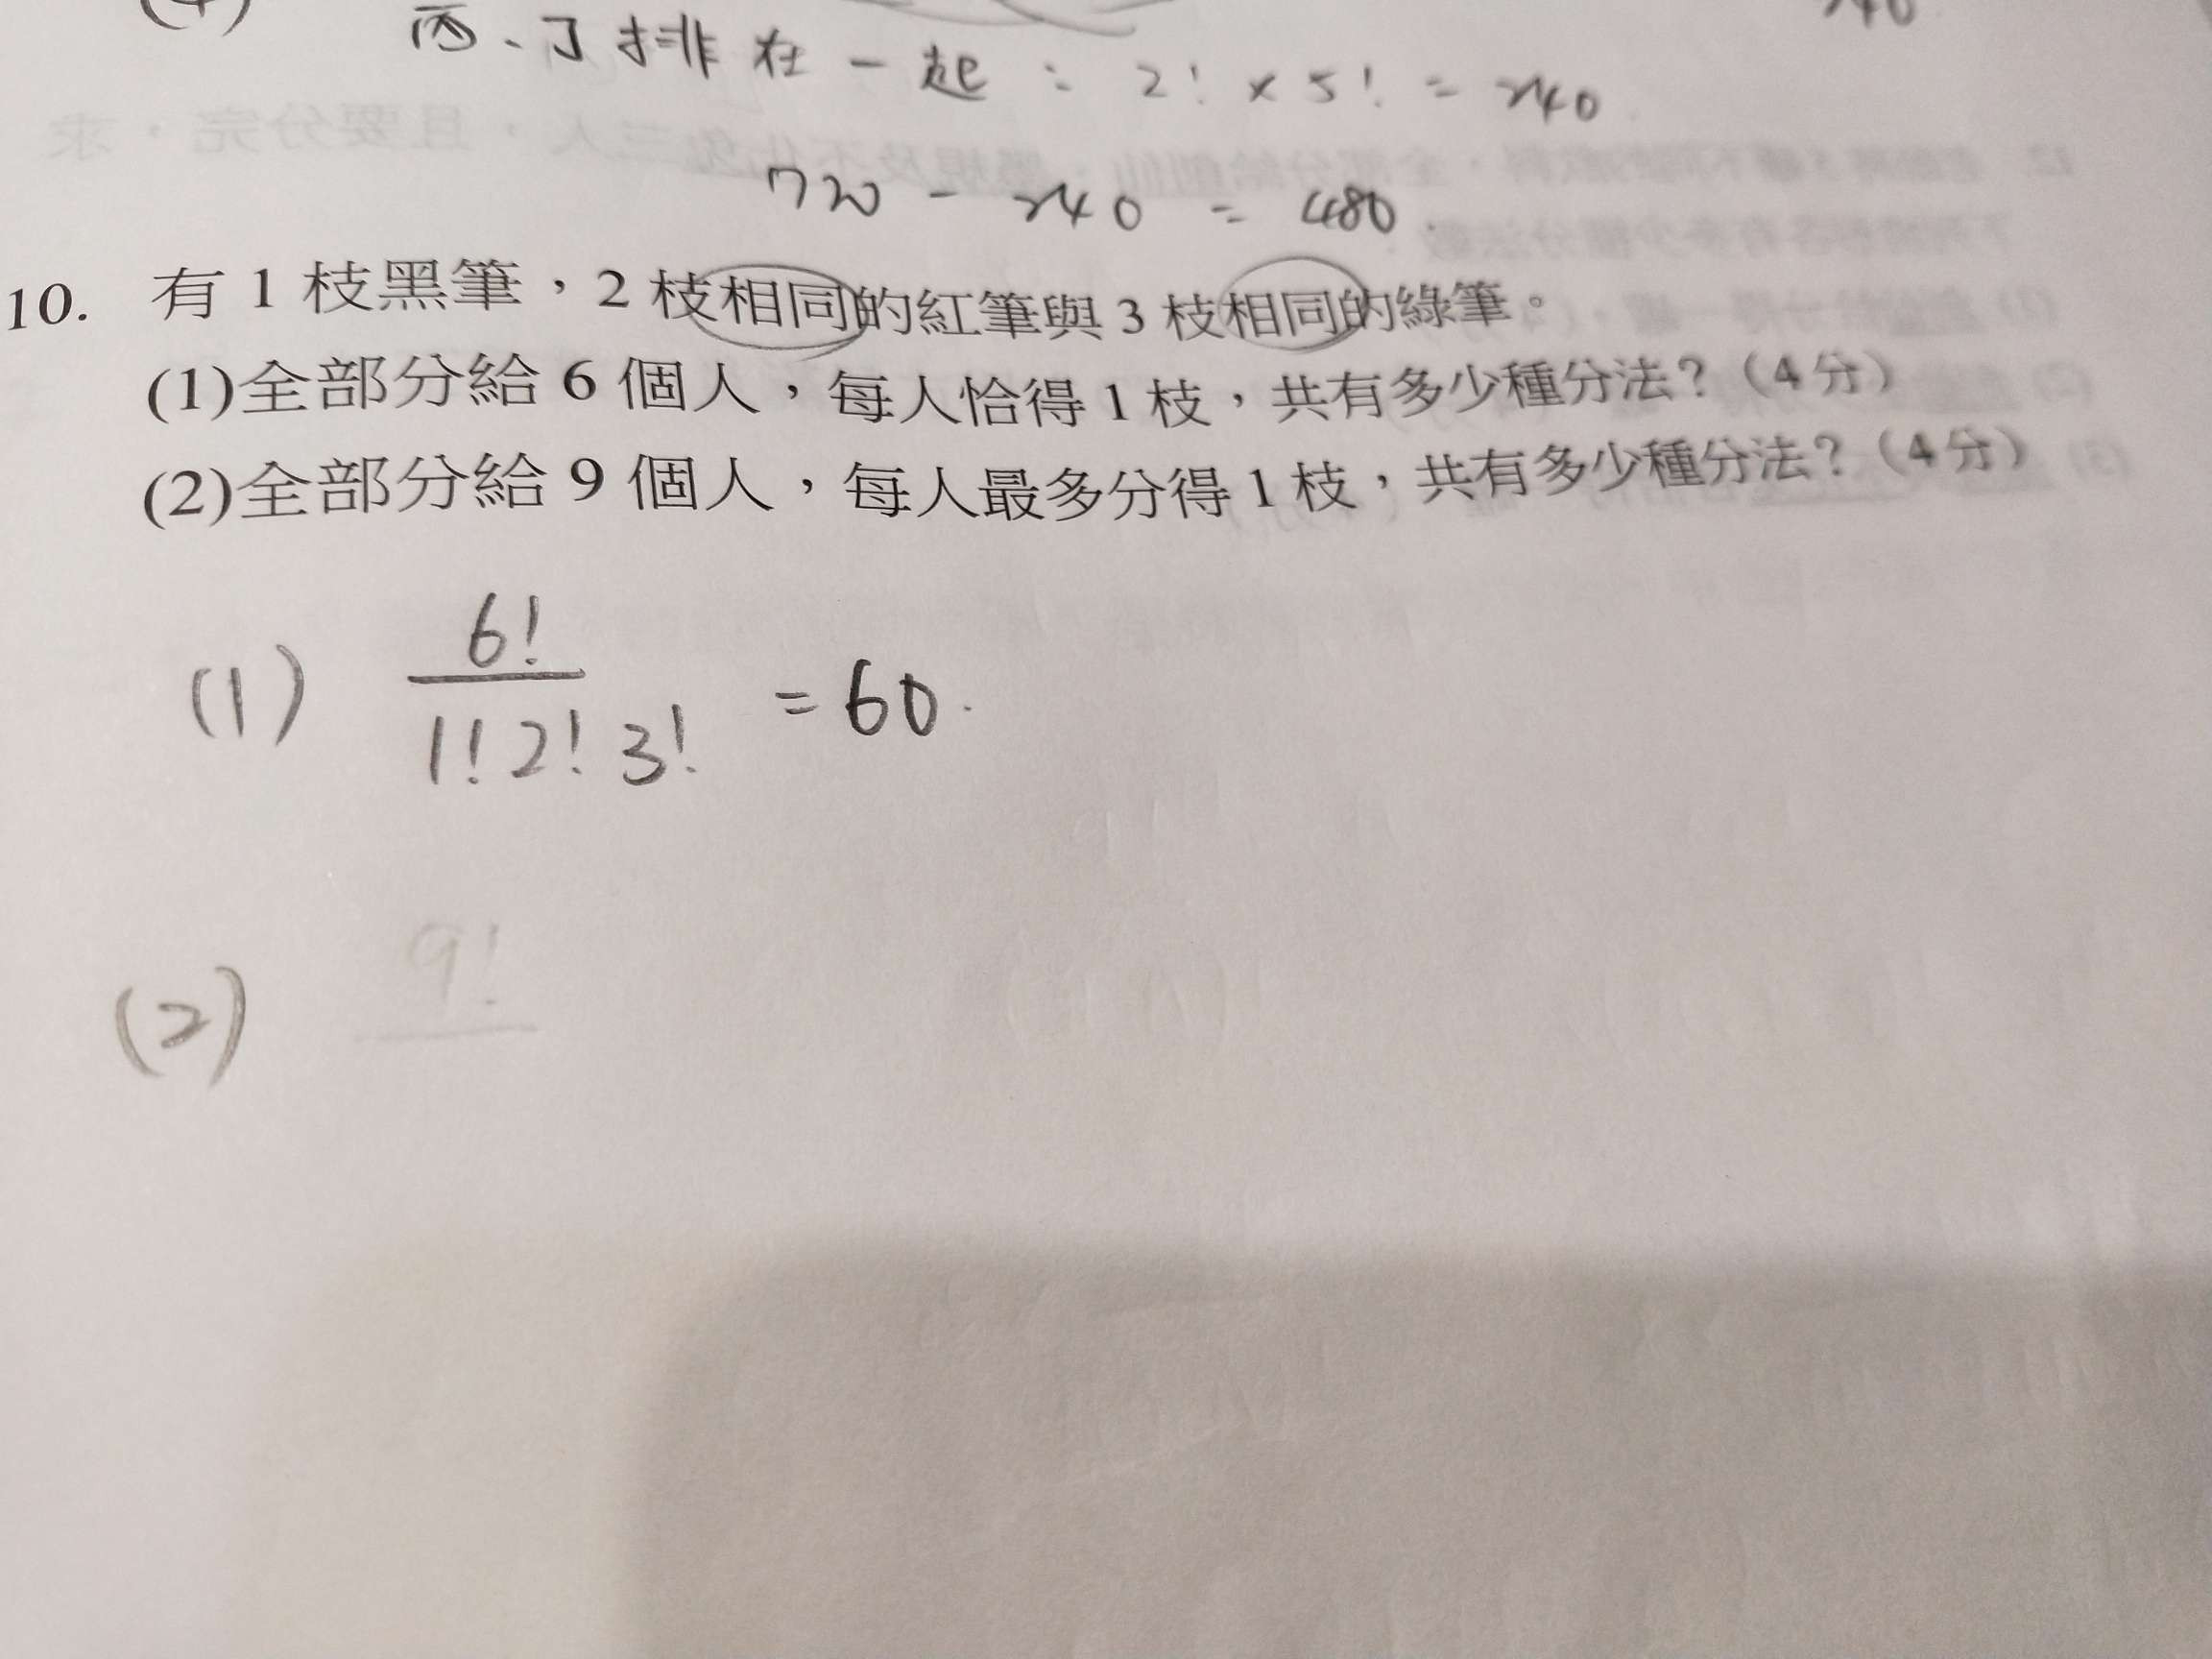 (4)
丙、丁排在一起：2! × 5! = 240
720 - 240 = 480.
10. 有 1 枝黑筆，2 枝相同的紅筆與 3 枝相同的綠筆。
(1)全部分給 6 個人，每人恰得 1 枝，共有多少種分法？（4 分）
(2)全部分給 9 個人，每人最多分得 1 枝，共有多少種分法？（4 分）
(1) 6! / 1! 2! 3! = 60.
(2) 9!